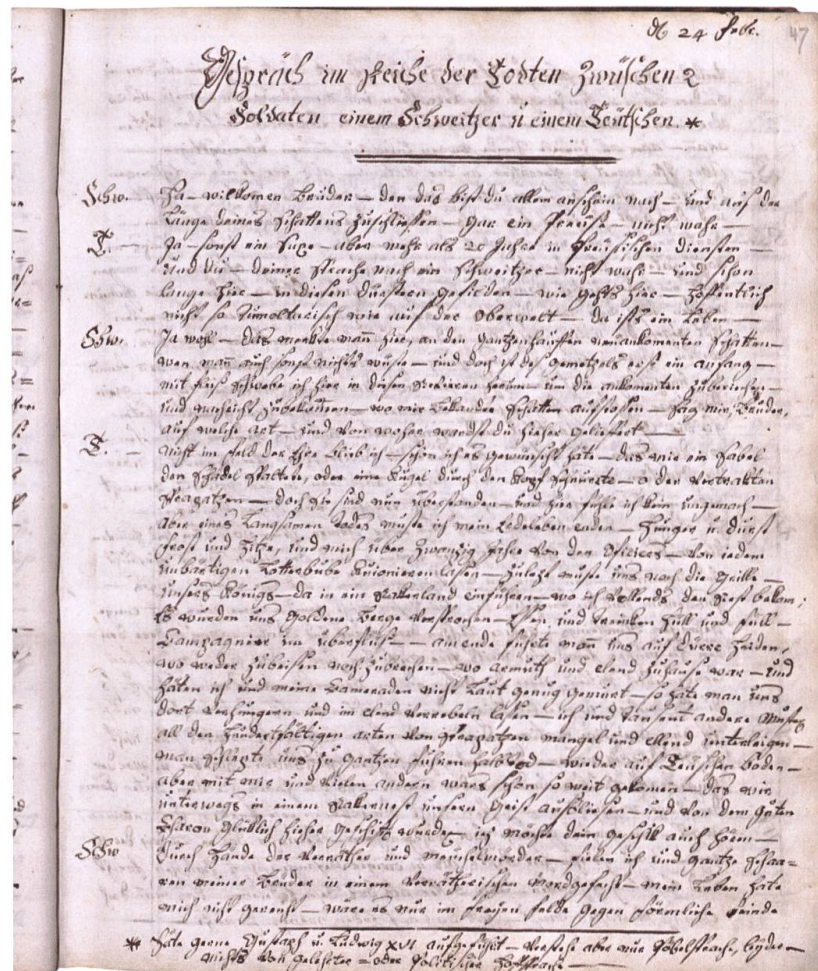 D 24 Febr. 47
Gespräch im Reiche der Todten Zwüschen 2
Soldaten einem Schweitzer u einem Teütschen. *
Schw. Ha – wilkomen Bruder – den das bist du allem anschein nach – und auf der
Länge deines Schattens zuschliessen – gar ein Preusse – nicht wahr –
T. Ja sonst ein – aber mehr als 20 Jahre in Preüsischen diensten –
Und du – deiner Sprache nach ein Schweitzer – nicht wahr – und schon
lange hier – in diesen düstern gefilden – wie gehts hier – hoffentlich
nicht so tumoltarisch wie auf der Oberwelt – da ists ein Leben –
Schw. Ja wohl – das merkte man hier, an den gantzen hauffen neuankomenten Schatten –
wen man auch sonst nichts wüste – und doch ist des gemetzels erst ein anfang –
mit fleiss schwebe ich hier in diesen herum – um die ankomenten zubesehen –
und vileicht zubekomen – wo mir bekandte Schatten aufstossen – Sag mir, Bruder,
auf welche art – und von woher wardst du hieher geliefert –
T. – nicht im feld der Ehre blieb ich – schon ich es gewünscht hate – das mir ein Sabel
den Schädel spaltete, oder eine Kugel durch den Kopf – o der vertrakten
Strapatzen – doch sie sind nun überstanden – und hier fühle ich kein ungemach –
aber eines langsamen todes muste ich mein enden – Hunger u. durst
frost und hitze, und mich über zwanzig Jahre von den Officiers – von jedem
unbärtigen Lotterbube kujonieren lasen – zuletzt muste uns noch die grille –
unsers Königs – da in ein einführen – wo ich vollends den rest bekam;
Es wurden uns goldene berge versprochen – Essen und trinken hüll und füll –
Campagner im überfluss – am ende führte man uns auf dürre heiden,
wo weder zubeisen noch zubrechen – wo armuth und elend zuhause war – und
häten ich und meine Cameraden nicht laut genug gemurt – so häte man uns
dort verhungern und im elend lasen – ich und tausent andere musten
all den hundertfältigen arten von strapatzen mangel und elend unterligen –
man schlepte uns zu gantzen fuhren halbtod – wieder auf Teütschen boden –
aber mit mir und vielen andern wars schon so weit gekomen – das wir
unterwegs in einem unsern Geist aufbliesen – und von dem guten
Charon glüklich hieher geschift wurden – ich möchte dein geschik auch hören –
Schw durch hände der verräther und meuchelmörder – fielen ich und gantze schaa=
ren meiner Brüder in einem verrätherischen mordgefecht – mein Leben häte
mich nicht gereut – wäre es nur im freyen felde gegen förmliche feinde
* häte gerne Gustaph u. Ludwig XVI aufgeführt – verstehe aber nur Pöbelsprache, leyder –
nichts von gelehrter – oder Politischer Hofsprache –